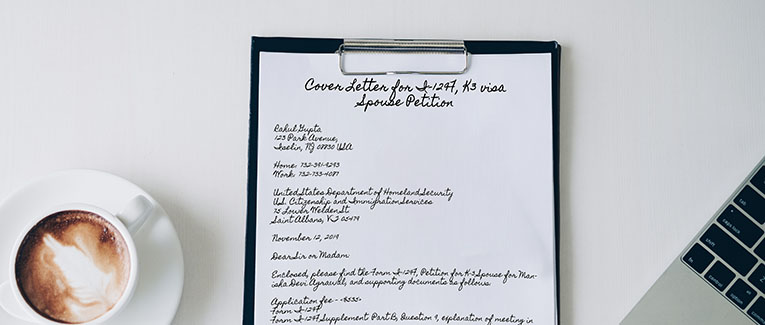 Cover Letter for I-129F, K3 visa
Spouse Petition
Rahul Gupta
123 Park Avenue,
Iselin, NJ 08830 USA
Home: 732-391-9293
Work: 732-733-4087
United States Department of Homeland Security
U.S. Citizenship and Immigration Services
75 Lower Welden St
Saint Albans, VT 05479
November 12, 2019
Dear Sir or Madam:
Enclosed, please find the Form I-129F, Petition for K-3 Spouse for Man-
isha Devi Agrawal, and supporting documents as follows:
Application fee - $535-
Form I-129F
Form I-129F Supplement Part B, Question 9, explanation of meeting in